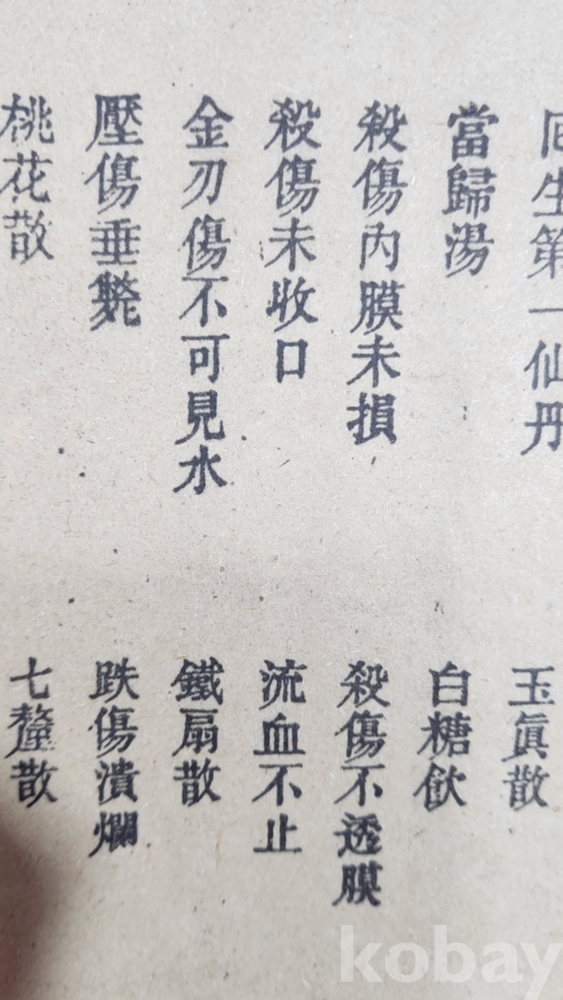 回生第一仙丹
玉眞散
當歸湯
白糖飮
殺傷內膜未損
殺傷不透膜
殺傷未收口
流血不止
金刃傷不可見水
鐵扇散
壓傷垂斃
跌傷潰爛
桃花散
七釐散
kobay